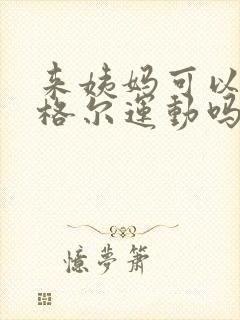 来姨妈可以
格尔運動吗
憶夢箫